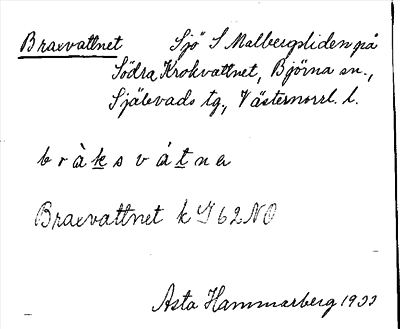 Braxvattnet Sjö S Malbergsliden på
Södra Krokvattnet, Björna sn.,
Själevads tg, Västernorrl. l.
b r à k s v á t n e r
Braxvattnet k J 62 NO
Asta Hammarberg 1933